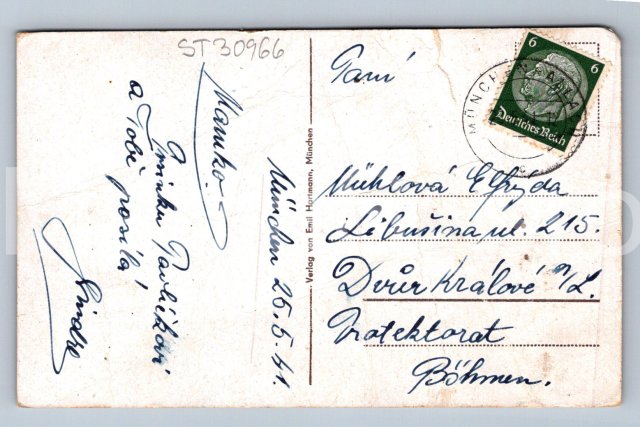 ST30966
Mamko
a Tobě posílá
München 25.5.41.
Verlag von Emil Hartmann, München
Paní
Mühlová Elfryda
Libušina ul. 215.
Dvůr Králové n/L.
Protektorat
Böhmen.
6 6
Deutsches Reich
MÜNCHEN